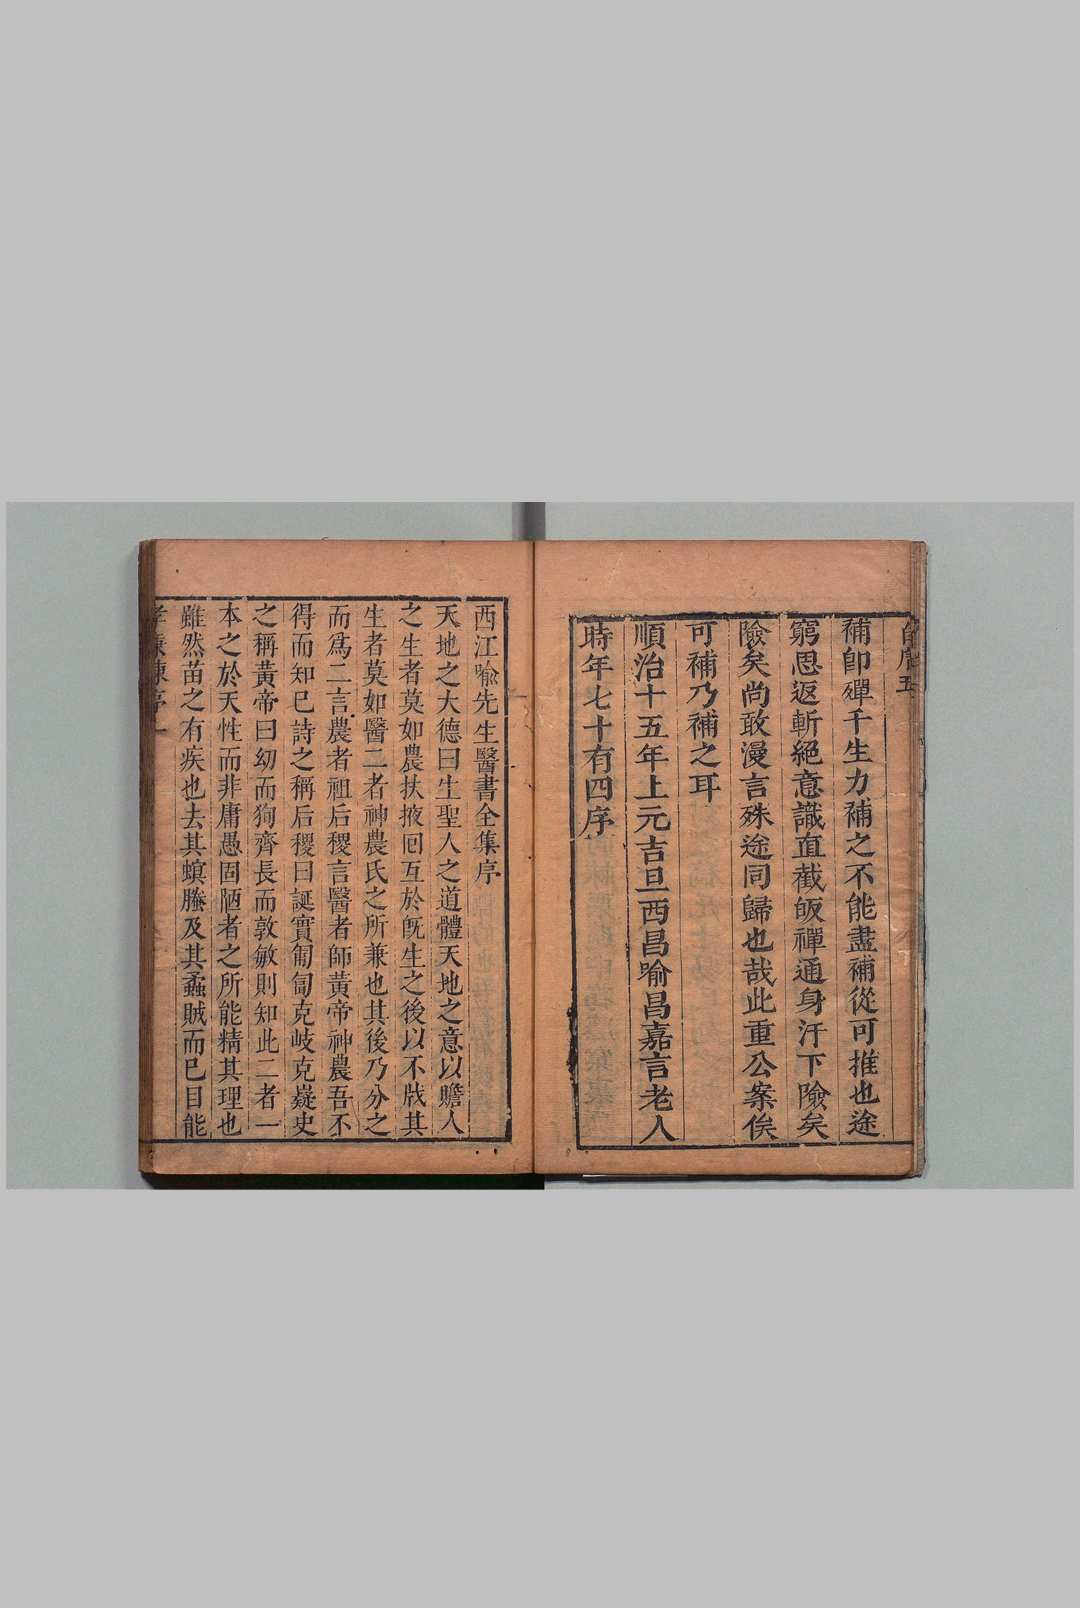 補卽殫千生力補之不能盡補從可推也途
窮思返斬絕意識直截皈禪通身汗下險矣
險矣尚敢漫言殊途同歸也哉此重公案俟
可補乃補之耳
順治十五年上元吉旦西昌喻昌嘉言老人
時年七十有四序
西江喻先生醫書全集序
天地之大德曰生聖人之道體天地之意以贍人
之生者莫如農扶掖回互於旣生之後以不戕其
生者莫如醫二者神農氏之所兼也其後乃分之
而爲二言農者祖后稷言醫者師黃帝神農吾不
得而知已詩之稱后稷曰誕實匍匐克岐克嶷史
之稱黃帝曰幼而狥齊長而敦敏則知此二者一
本之於天性而非庸愚固陋者之所能精其理也
雖然苗之有疾也去其螟螣及其蟊賊而已目能